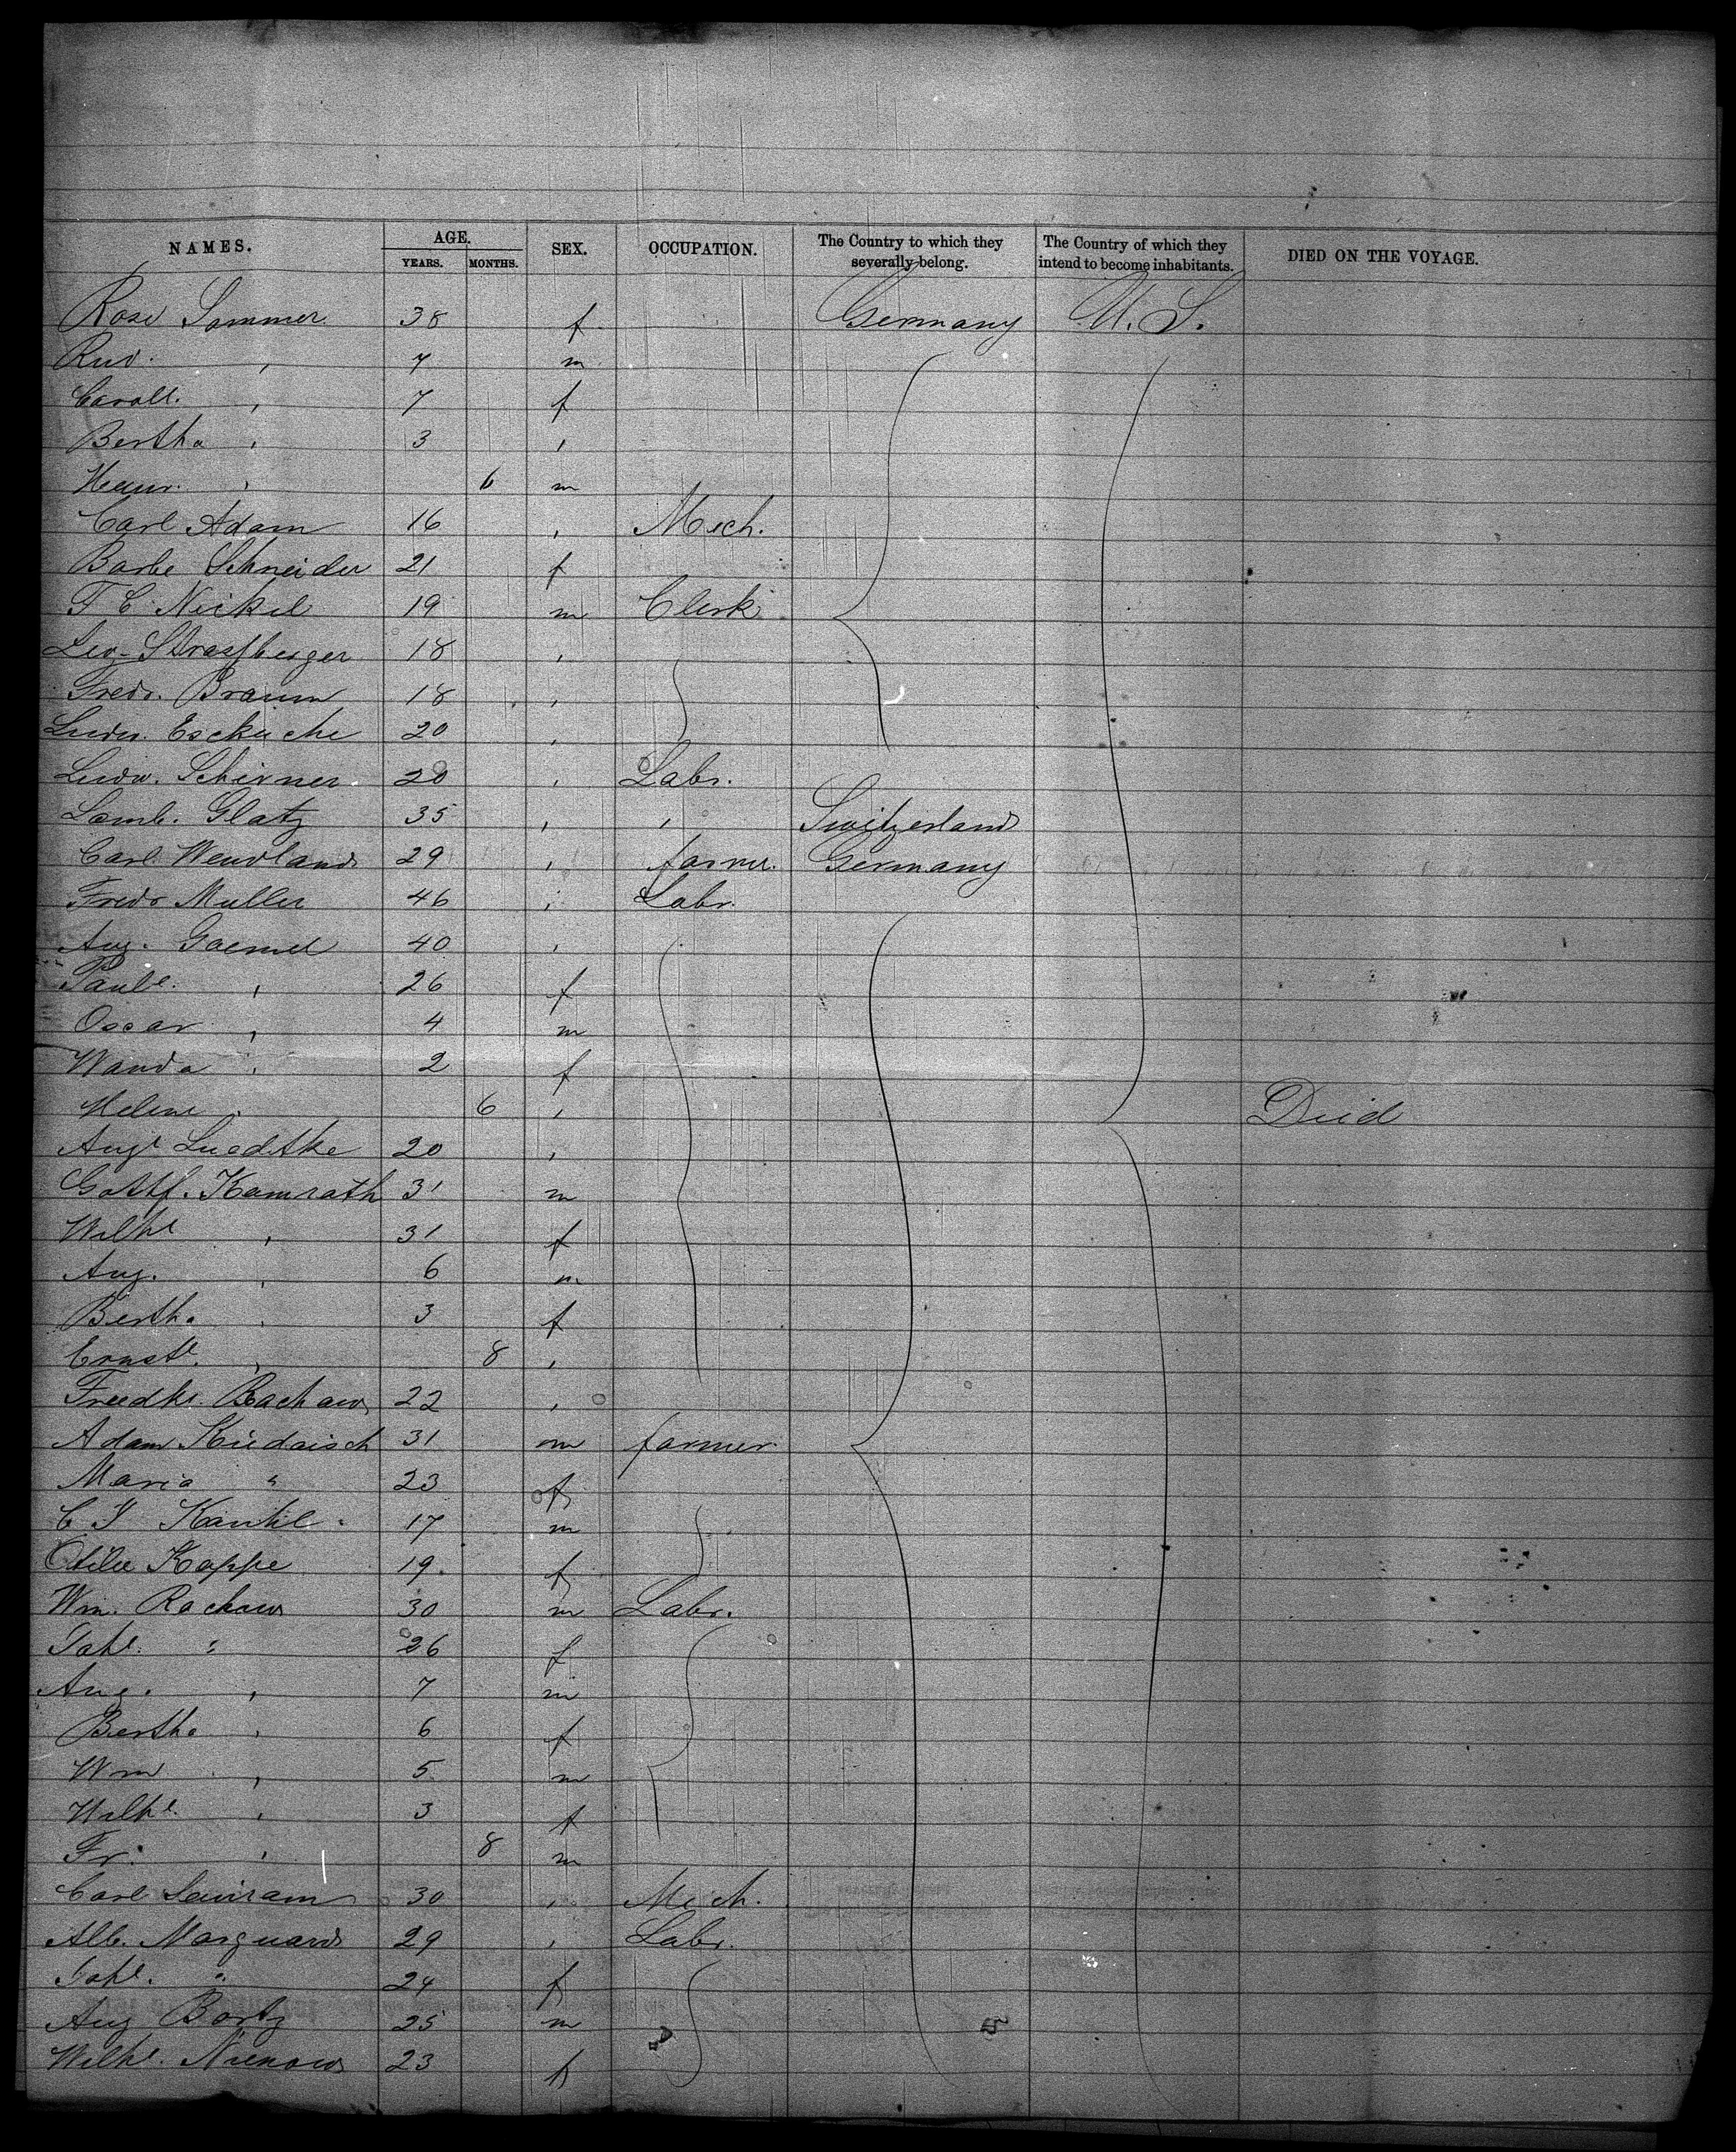 NAMES. AGE. YEARS. MONTHS. SEX. OCCUPATION. The Country to which they severally belong. The Country of which they intend to become inhabitants. DIED ON THE VOYAGE.
Rose Sommer. 38 f. Germany U. S.
Rud. , 7 m.
Caroll. , 7 f
Bertha , 3 ,
Heinr. , 6 m
Carl Adam 16 , Mech.
Barbe Schneider 21 f
F C Nickel 19 m Clerk
Leo Strassberger 18 ,
Fredr. Braum 18 ,
Ludw. Eskuche 20 ,
Ludw. Schirner. 20 , Labr.
Lamb. Glatz 35 , , Switzerland
Carl Wendland 29 , farmer. Germany
Fredr Muller 46 , Labr.
Aug. Goemel 40 ,
Paule. , 26 f
Oscar , 4 m
Wanda , 2 f
Helene , 6 , Died
Auge Luedtke 20 ,
Gottf. Kamrath 31 m
Wilhe , 31 f
Aug. , 6 m
Bertha , 3 f
Ernste. , 8 ,
Friedke. Rachow 22 ,
Adam Kiedaisch 31 m farmer
Maria " 23 f
C F Kantel 17 m
Otilie Koppe 19 f
Wm. Rachow 30 m Labr.
Johe. " 26 f
Aug. , 7 m
Bertha , 6 f
Wm , 5 m
Wilhe. , 3 f
Fr. , 8 m
Carl 30 , Mech.
Alb. Marquard 29 , Labr.
Johe. " 24 f
Aug Bortz 25 m
Wilhe. Nienow 23 f